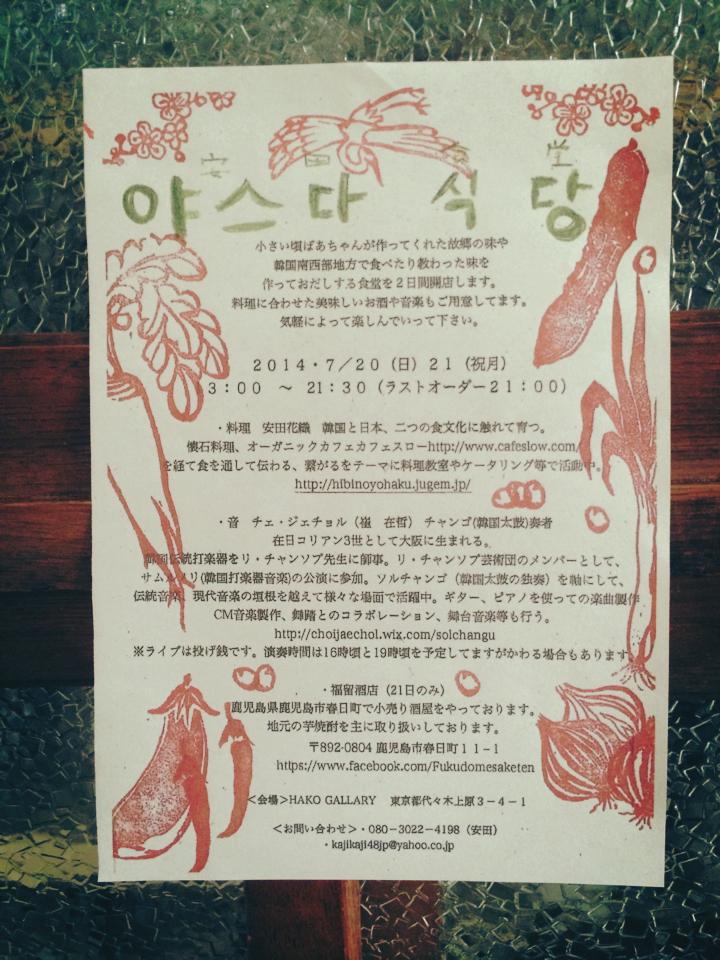 安 田 食 堂
야스다 식당
小さい頃ばあちゃんが作ってくれた故郷の味や
韓国南西部地方で食べたり教わった味を
作っておだしする食堂を２日間開店します。
料理に合わせた美味しいお酒や音楽もご用意してます。
気軽によって楽しんでいって下さい。
２０１４・７／２０（日）２１（祝月）
３：００ ～ ２１：３０（ラストオーダー２１：００）
・料理 安田花織 韓国と日本、二つの食文化に触れて育つ。
懐石料理、オーガニックカフェカフェスローhttp://www.cafeslow.com/
を経て食を通して伝わる、繋がるをテーマに料理教室やケータリング等で活動中。
http://hibinoyohaku.jugem.jp/
・音 チェ・ジェチョル（崔 在哲） チャンゴ(韓国太鼓)奏者
在日コリアン3世として大阪に生まれる。
韓国伝統打楽器をリ・チャンソプ先生に師事。リ・チャンソプ芸術団のメンバーとして、
サムルノリ(韓国打楽器音楽)の公演に参加。ソルチャンゴ（韓国太鼓の独奏）を軸にして、
伝統音楽、現代音楽の垣根を越えて様々な場面で活躍中。ギター、ピアノを使っての楽曲製作
CM音楽製作、舞踏とのコラボレーション、舞台音楽等も行う。
http://choijaechol.wix.com/solchangu
※ライブは投げ銭です。演奏時間は16時頃と19時頃を予定してますがかわる場合もあります。
・福留酒店（21日のみ）
鹿児島県鹿児島市春日町で小売り酒屋をやっております。
地元の芋焼酎を主に取り扱いしております。
〒892-0804 鹿児島市春日町１１－１
https://www.facebook.com/Fukudomesaketen
＜会場＞HAKO GALLARY 東京都代々木上原３－４－１
＜お問い合わせ＞・080－3022－4198（安田）
・kajikaji48jp@yahoo.co.jp